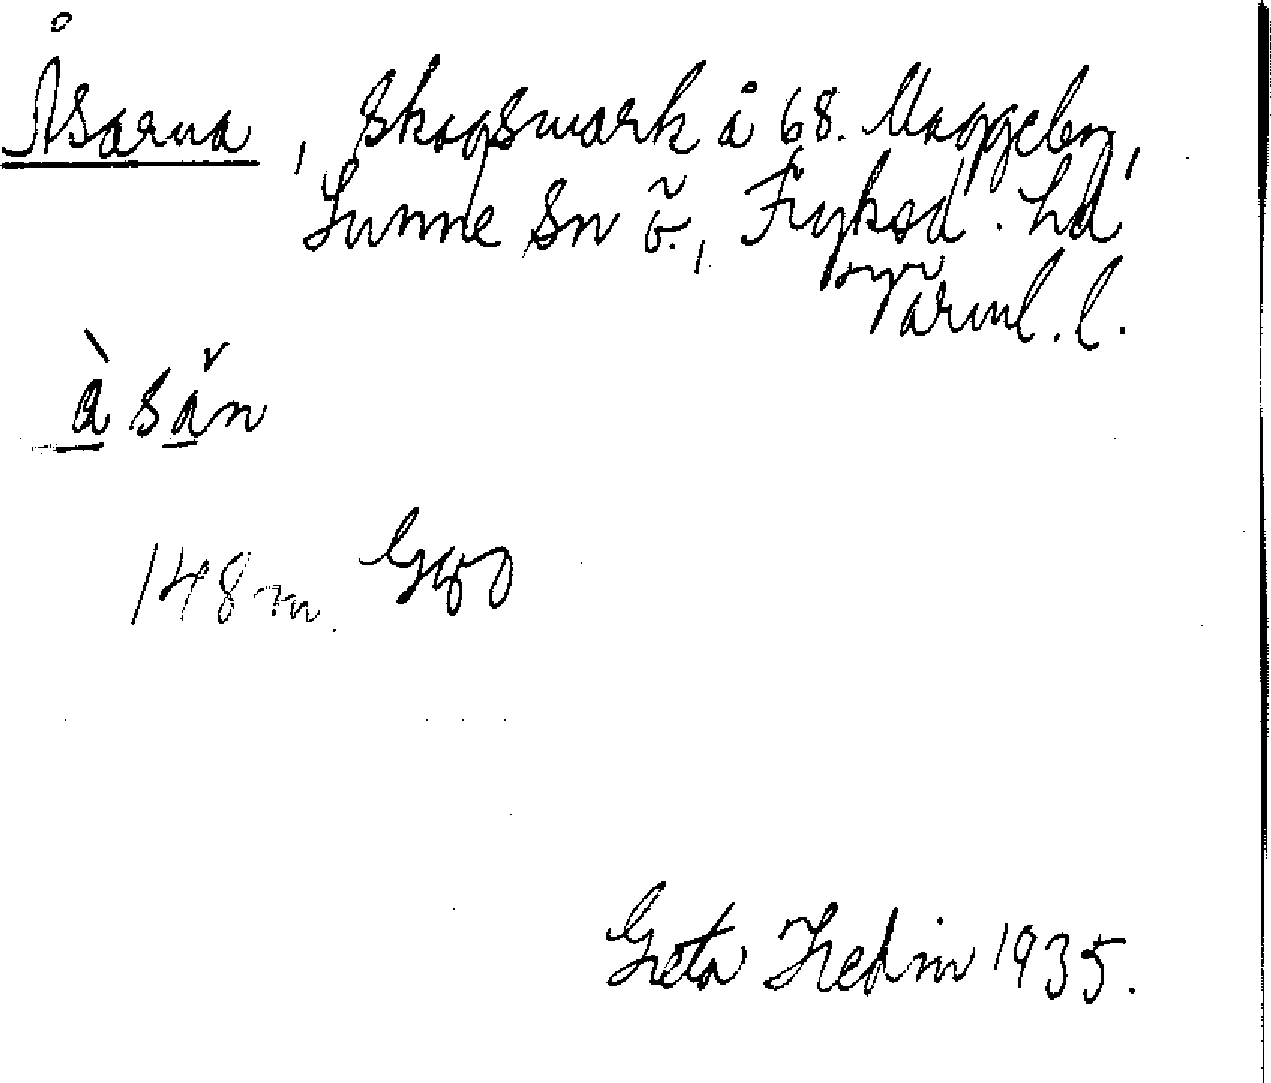 Åsarna, skogsmark å 68. Maggeby,
Sunne sn ö., Fryksd. hd
Värml. l.
à săn
148 m.
Greta Hedin 1935.